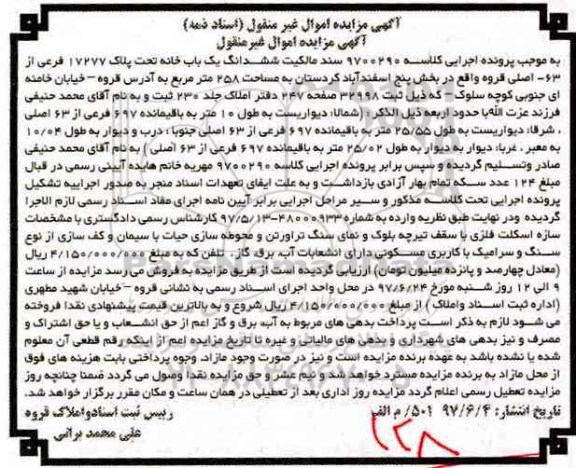 آگهی مزایده اموال غیر منقول (اسناد ذمه)
آگهی مزایده اموال غیر منقول
به موجب پرونده اجرایی کلاسه ۹۷۰۰۲۹۰ سند مالکیت ششدانگ یک باب خانه تحت پلاک ۱۷۲۷۷ فرعی از
۶۳- اصلی قروه واقع در بخش پنج اسفندآباد کردستان به مساحت ۲۵۸ متر مربع به آدرس قروه – خیابان خامنه
ای جنوبی کوچه سلوک – که ذیل ثبت ۳۲۹۹۸ صفحه ۲۴۷ دفتر املاک جلد ۲۳۰ ثبت و به نام آقای محمد حنیفی
فرزند عزت الله با حدود اربعه ذیل الذکر: (شمالا: دیواریست به طول ۱۰ متر به باقیمانده ۶۹۷ فرعی از ۶۳ اصلی
، شرقا: دیواریست به طول ۲۵/۵۵ متر به باقیمانده ۶۹۷ فرعی از ۶۳ اصلی جنوبا: درب و دیوار به طول ۱۰/۰۴
به معبر، غربا: دیوار به دیوار به طول ۲۵/۰۲ متر به باقیمانده ۶۹۷ فرعی از ۶۳ اصلی) به نام آقای محمد حنیفی
صادر وتسلیم گردیده و سپس برابر پرونده اجرایی کلاسه ۹۷۰۰۲۹۰ مهریه خانم هایده آبینی رسمی در قبال
مبلغ ۱۲۴ عدد سکه تمام بهار آزادی بازداشت و به علت ایفای تعهدات اسناد منجر به صدور اجراییه تشکیل
پرونده اجرایی تحت کلاسه مذکور و سیر مراحل اجرایی برابر آیین نامه اجرای مفاد اسناد رسمی لازم الاجرا
گردیده ودر نهایت طبق نظریه وارده به شماره ۴۸۰۰۰۹۳۳-۹۷/۵/۱۳ کارشناس رسمی دادگستری با مشخصات
سازه اسکلت فلزی با سقف تیرچه بلوک و نمای سنگ تراورتن و محوطه سازی حیات با سیمان و کف سازی از نوع
سنگ و سرامیک با کاربری مسکونی دارای انشعابات آب، برق، گاز، تلفن که به مبلغ ۴/۱۵۰/۰۰۰/۰۰۰ ریال
(معادل چهارصد و پانزده میلیون تومان) ارزیابی گردیده است از طریق مزایده به فروش می رسد مزایده از ساعت
۹ الی ۱۲ روز شنبه مورخ ۹۷/۶/۲۴ در محل واحد اجرای اسناد رسمی به نشانی قروه – خیابان شهید مطهری
(اداره ثبت اسناد واملاک) از مبلغ ۴/۱۵۰/۰۰۰/۰۰۰ ریال شروع و به بالاترین قیمت پیشنهادی نقدا فروخته
می شود لازم به ذکر است پرداخت بدهی های مربوط به آب، برق و گاز اعم از حق انشعاب و یا حق اشتراک و
مصرف و نیز بدهی های شهرداری و بدهی های مالیاتی و غیره تا تاریخ مزایده اعم از اینکه رقم قطعی آن معلوم
شده یا نشده باشد به عهده برنده مزایده است و نیز در صورت وجود مازاد، وجوه پرداختی بابت هزینه های فوق
از محل مازاد به برنده مزایده مسترد خواهد شد و نیم عشر و حق مزایده نقدا وصول می گردد ضمنا چنانچه روز
مزایده تعطیل رسمی اعلام گردد مزایده روز اداری بعد از تعطیلی در همان ساعت و مکان مقرر برگزار خواهد شد.
تاریخ انتشار: ۹۷/۶/۴ ۵۰۱/ م الف
رییس ثبت اسناد واملاک قروه
علی محمد براتی
۱۲۸